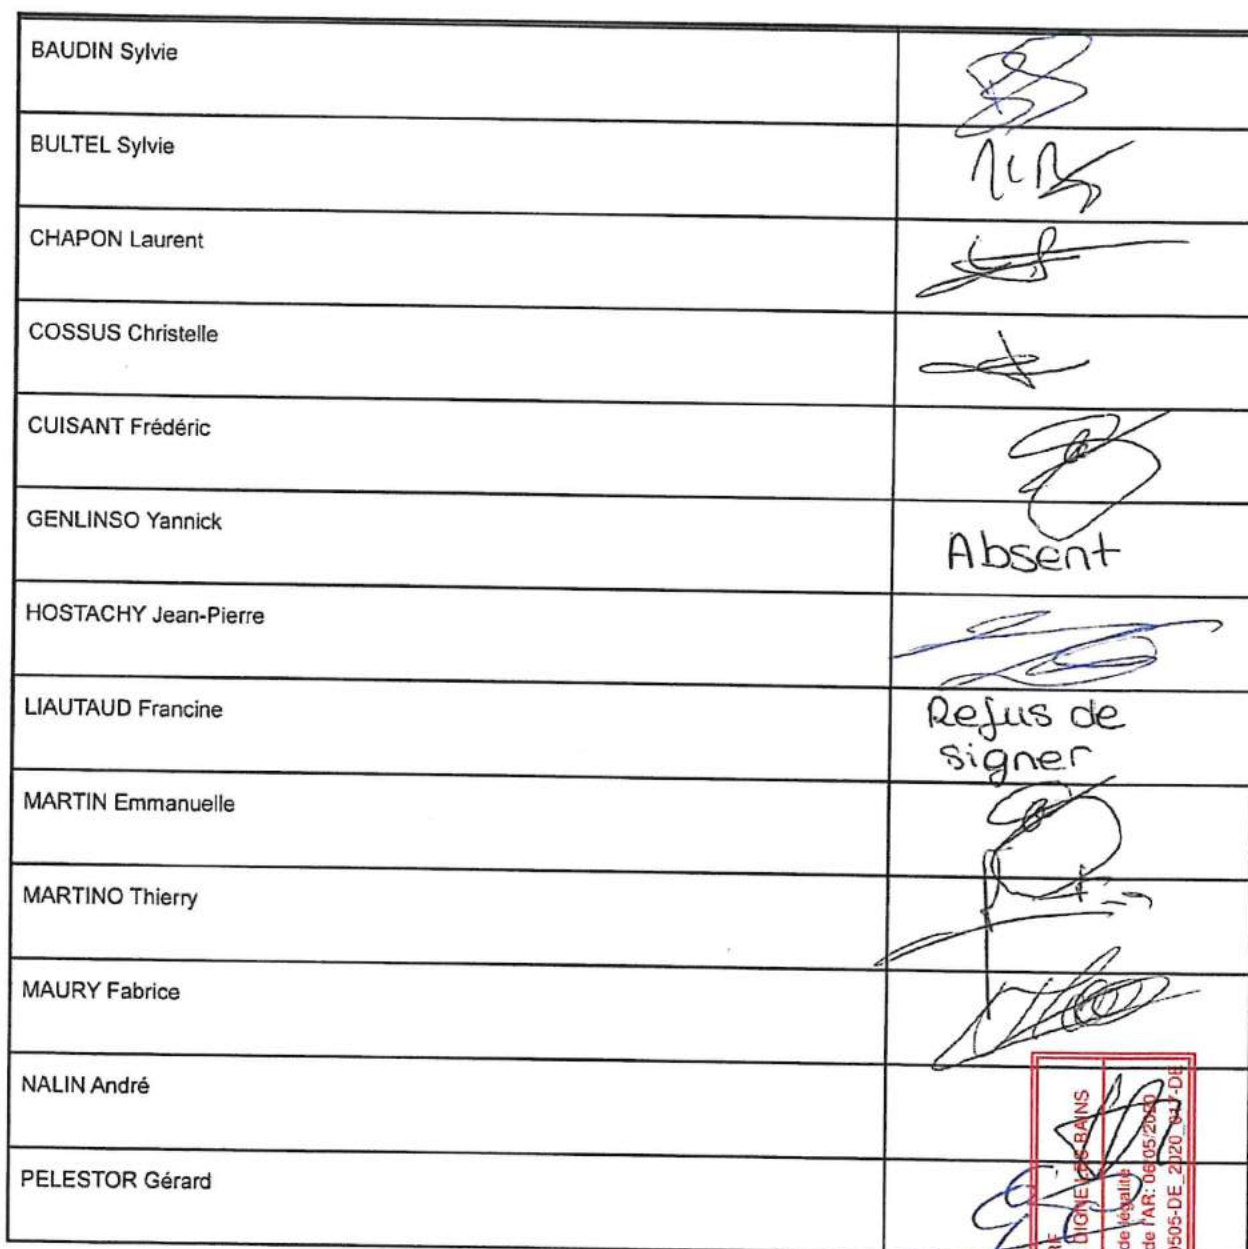 BAUDIN Sylvie
BULTEL Sylvie
CHAPON Laurent
COSSUS Christelle
CUISANT Frédéric
GENLINSO Yannick
Absent
HOSTACHY Jean-Pierre
LIAUTAUD Francine
Refus de
signer
MARTIN Emmanuelle
MARTINO Thierry
MAURY Fabrice
NALIN André
PELESTOR Gérard
RE
DIGNE LES BAINS
de légalité
de l'AR: 06/05/2020
505-DE_2020_017-DE